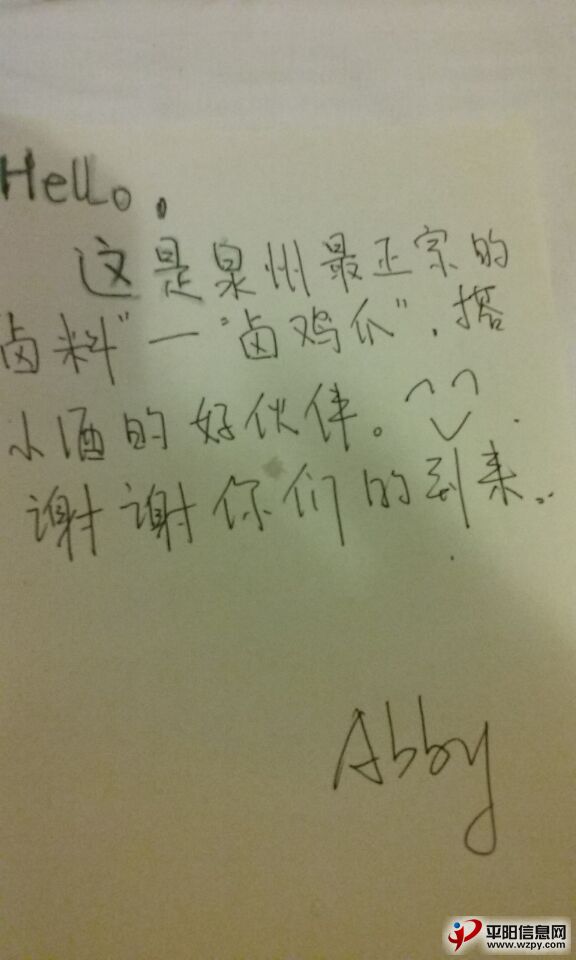 Hello.
这是泉州最正宗的
卤料"一"卤鸡爪",搭
小酒的好伙伴。
谢谢你们的到来..
Abby
平阳信息网
www.wzpy.com